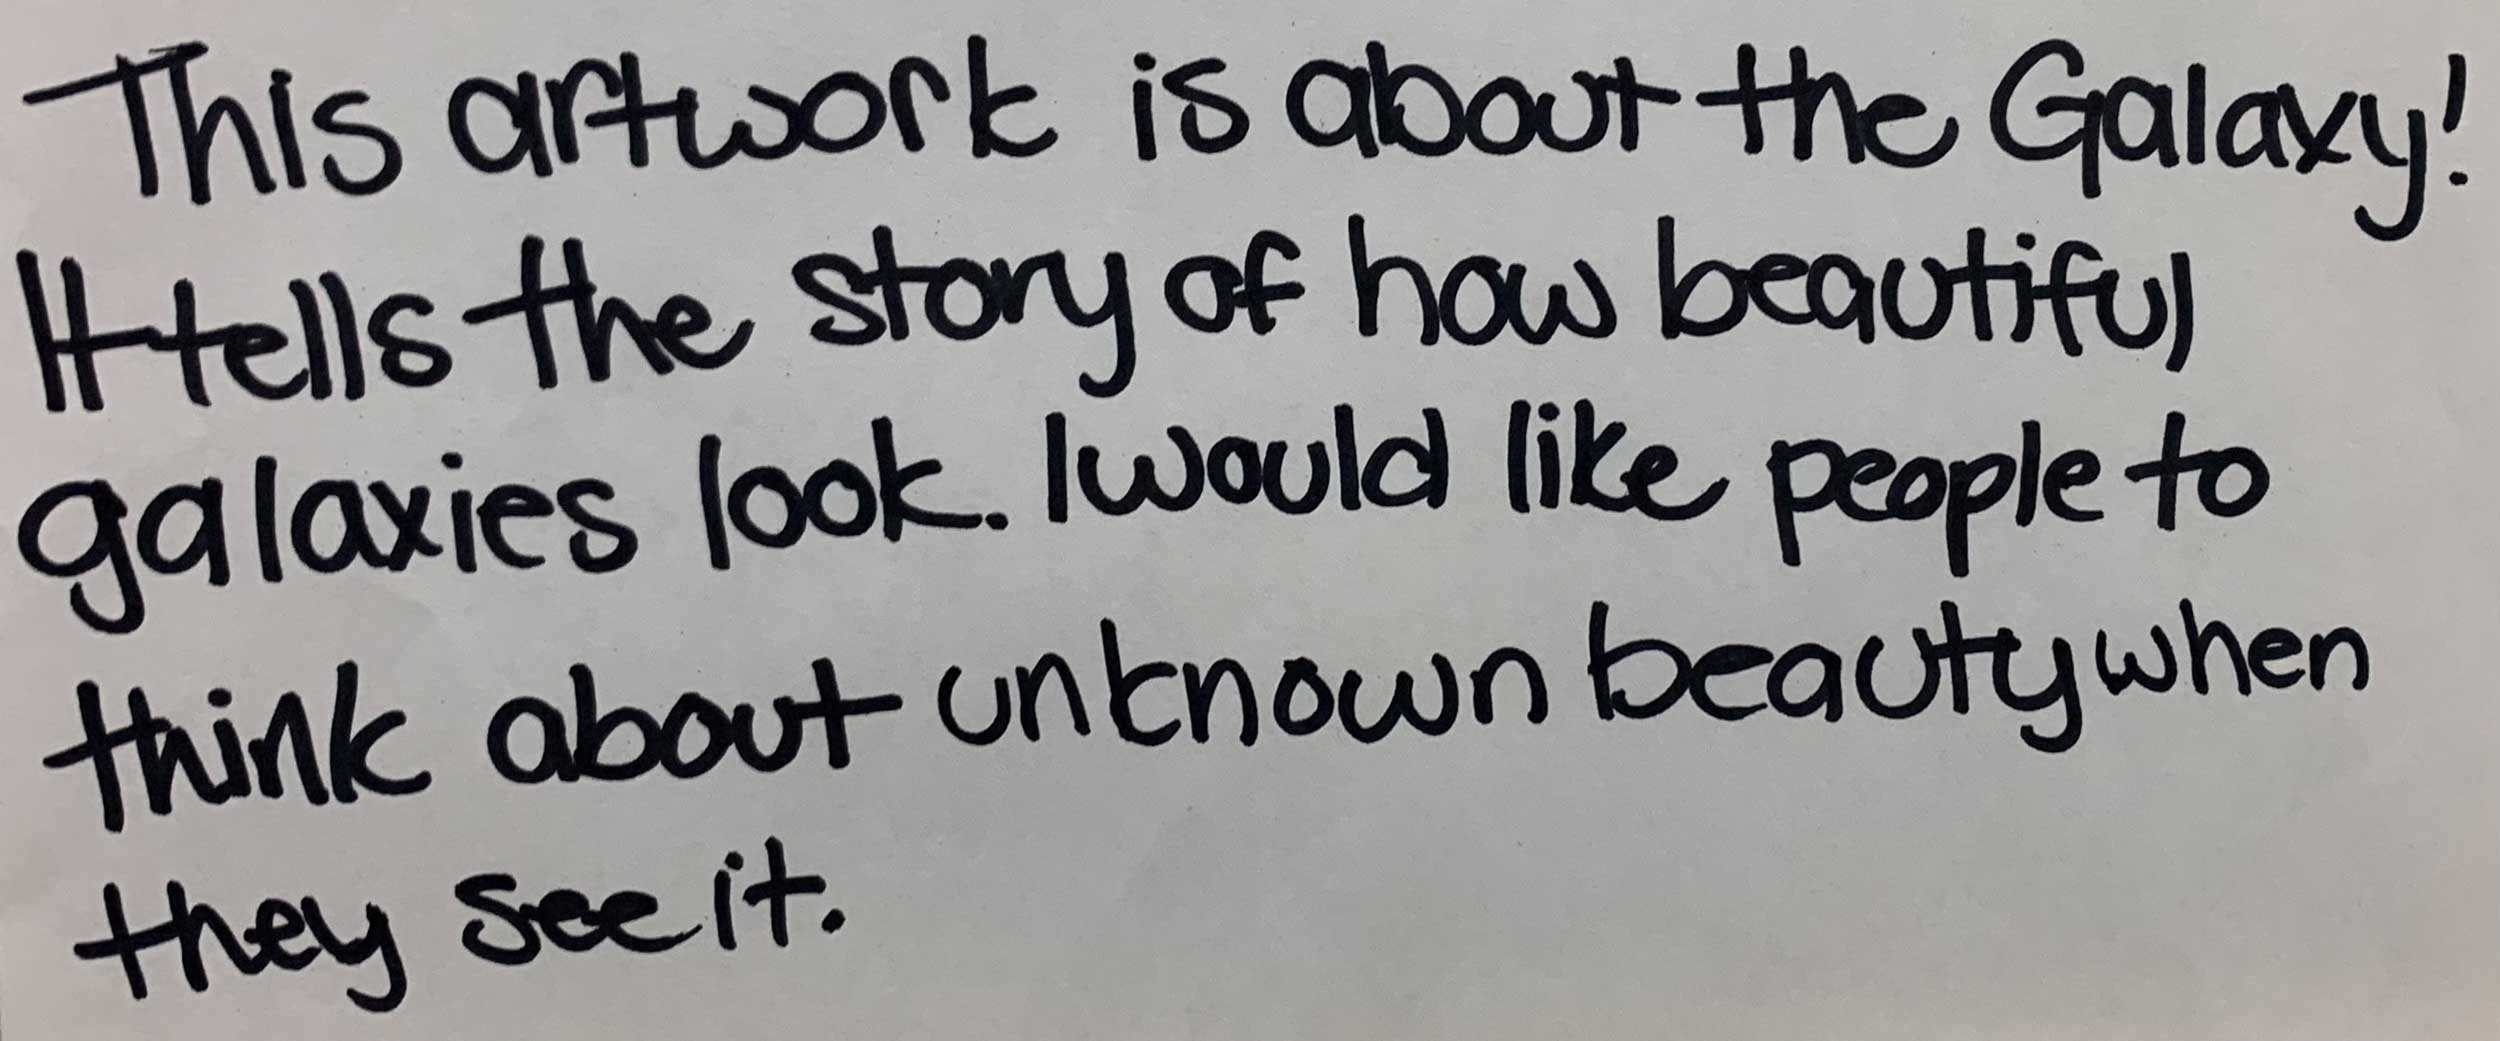 This artwork is about the Galaxy!
It tells the story of how beautiful
galaxies look. I would like people to
think about unknown beauty when
they see it.